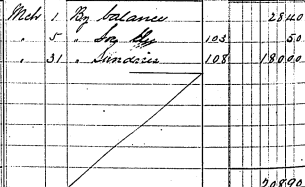 Mch 1 By balance 2840
" 5 " 103 50
" 31 " Sundries 108 18000
20890